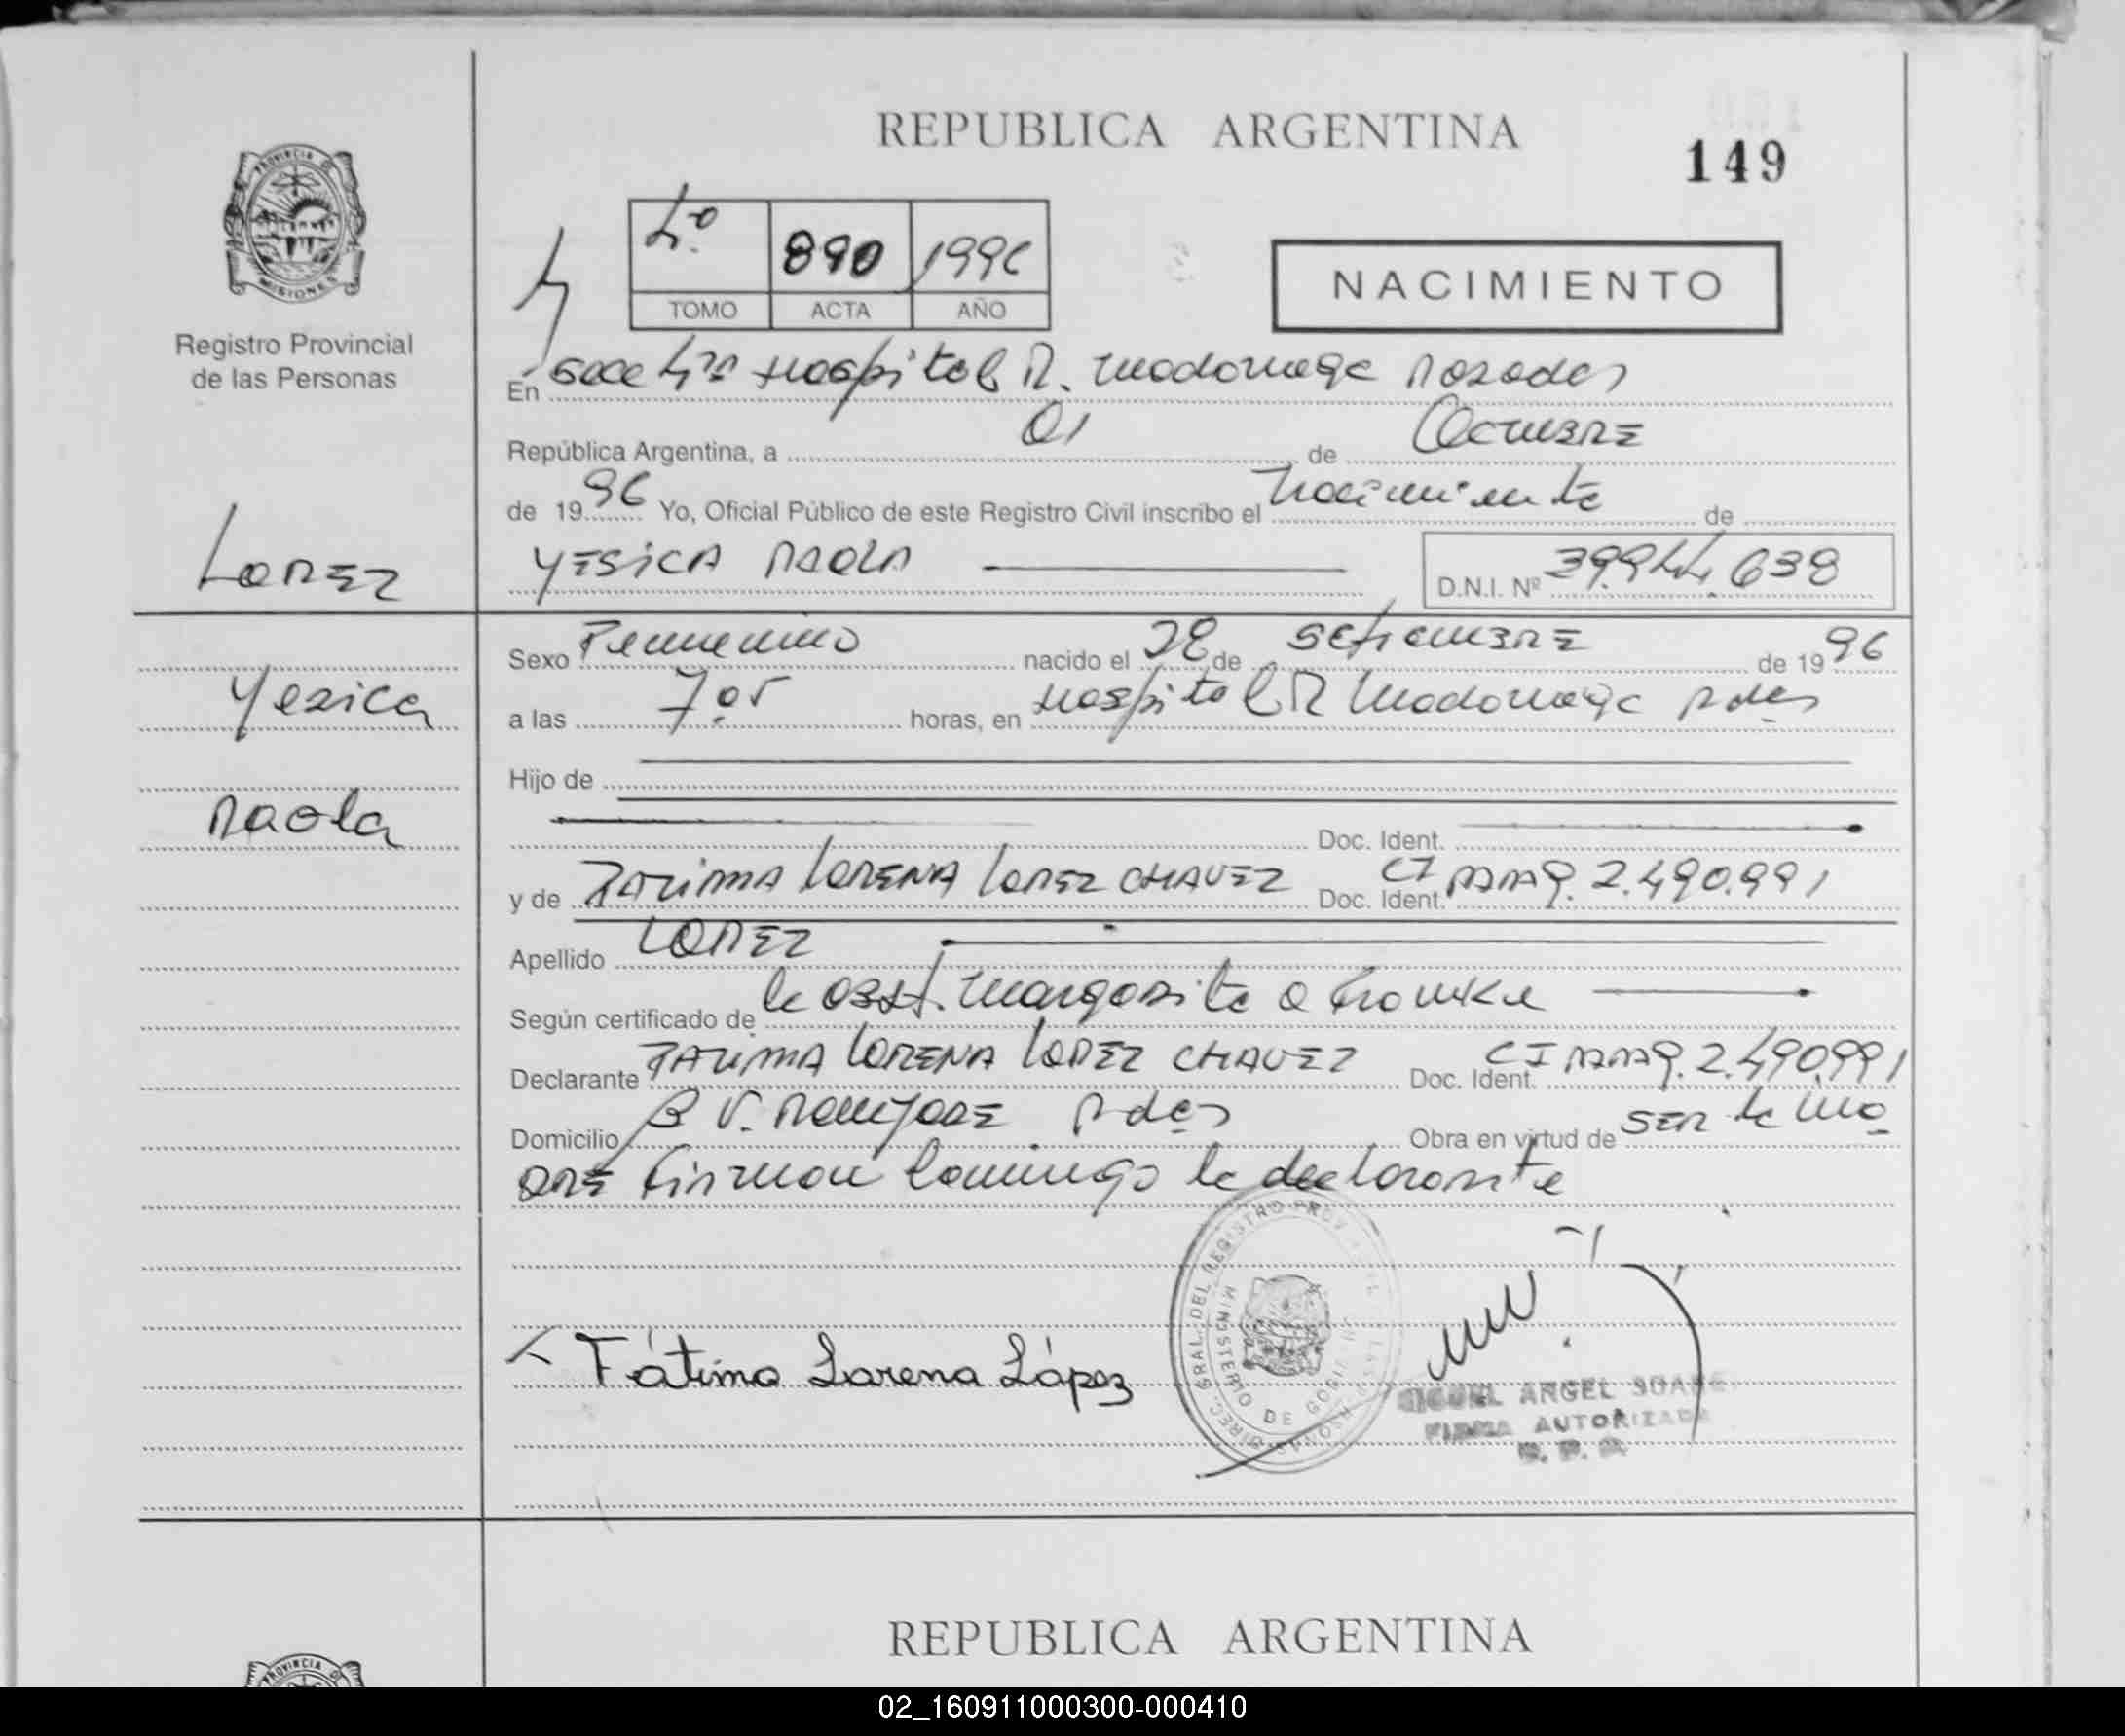 REPUBLICA ARGENTINA
149
PROVINCIA DE MISIONES
Registro Provincial
de las Personas
4º 890 1996
TOMO ACTA AÑO
NACIMIENTO
En Secc 4ta Hospital R. Madariaga Posadas
República Argentina, a 01 de Octubre
de 1996 Yo, Oficial Público de este Registro Civil inscribo el Nacimiento de
LOPEZ
YESICA PAOLA
D.N.I. Nº 39.944.638
Sexo Femenino nacido el 28 de SETIEMBRE de 1996
Yesica
a las 7.05 horas, en Hospital R Madariaga Pdas
Hijo de
Paola
Doc. Ident.
y de FATIMA LORENA LOPEZ CHAVEZ Doc. Ident. CI 2.490.991
Apellido LOPEZ
Según certificado de la Obst. Margarita
Declarante FATIMA LORENA LOPEZ CHAVEZ Doc. Ident. CI 2.490.991
Domicilio B V. Pdas Obra en virtud de SER la MA
DRE Firman Conmigo la declarante
Fátima Lorena López
DIREC. GRAL. DEL REGISTRO PROV. DE LAS PERSONAS
MINISTERIO DE GOBIERNO
MIGUEL ANGEL SUAREZ
FIRMA AUTORIZADA
REPUBLICA ARGENTINA
PROVINCIA D
02_160911000300-000410